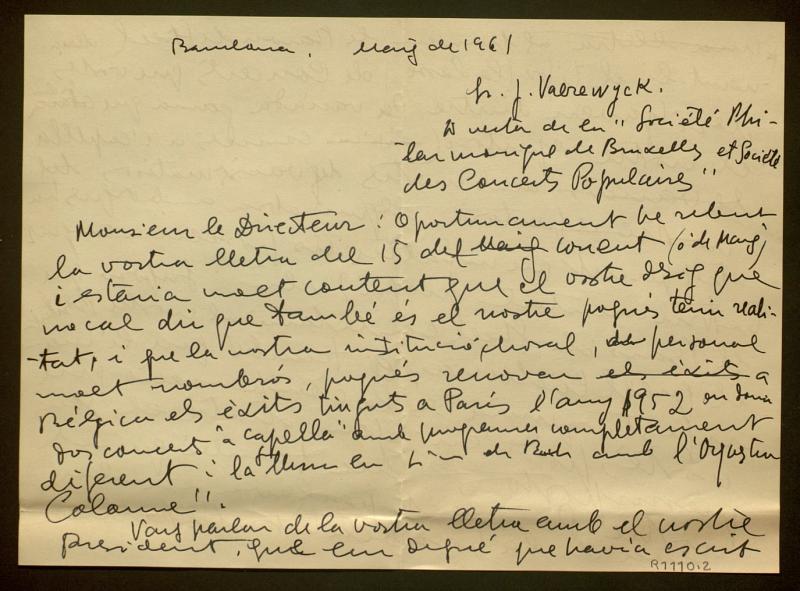 Barcelona. Maig de 1961
Sr. J. Vaerewyck.
Director de la "Société Phi-
-larmonique de Bruxelles et Société
des Concerts Populaires"
Monsieur le Directeur: Oportunament he rebut
la vostra lletra del 15 del Maig corrent (o de Maig)
i estaria molt content que el vostre desig que
no cal dir que també és el nostre pogués tenir reali-
-tat, i que la nostra institució choral, de personal
molt nombrós, pogués renovar els èxits a
Bélgica els èxits tinguts a París l'any 1952 on donà
dos concerts "a capella" amb programes completament
diferent i la Missa en Si m de Bach amb l'Orquestra
Colonne".
Vaig parlar de la vostra lletra amb el nostre
President, que em digué que havia escrit
R1110.2